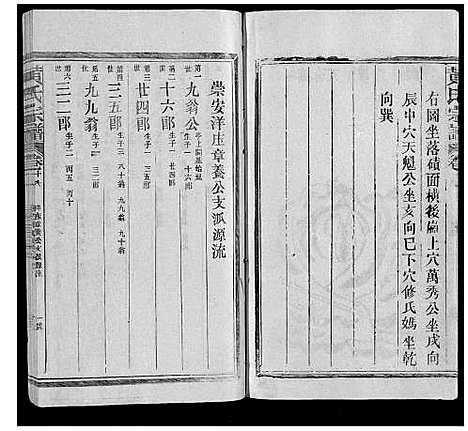 黃氏宗譜
右圖坐落磧面橫後廟上穴萬秀公坐戌向
辰中穴天魁公坐亥向巳下穴修氏媽坐乾
向巽
崇安洋庄章養公支派源流
第一世 九翁公
第二世 十六郎 生子
第三世 廿四郎 生子
第四世 三五郎 生子三 八十翁 九九翁 九十翁
第五世 九九翁 生子一 三二郎
第六世 三二郎 生子二 丙五 丙十
黃氏宗譜